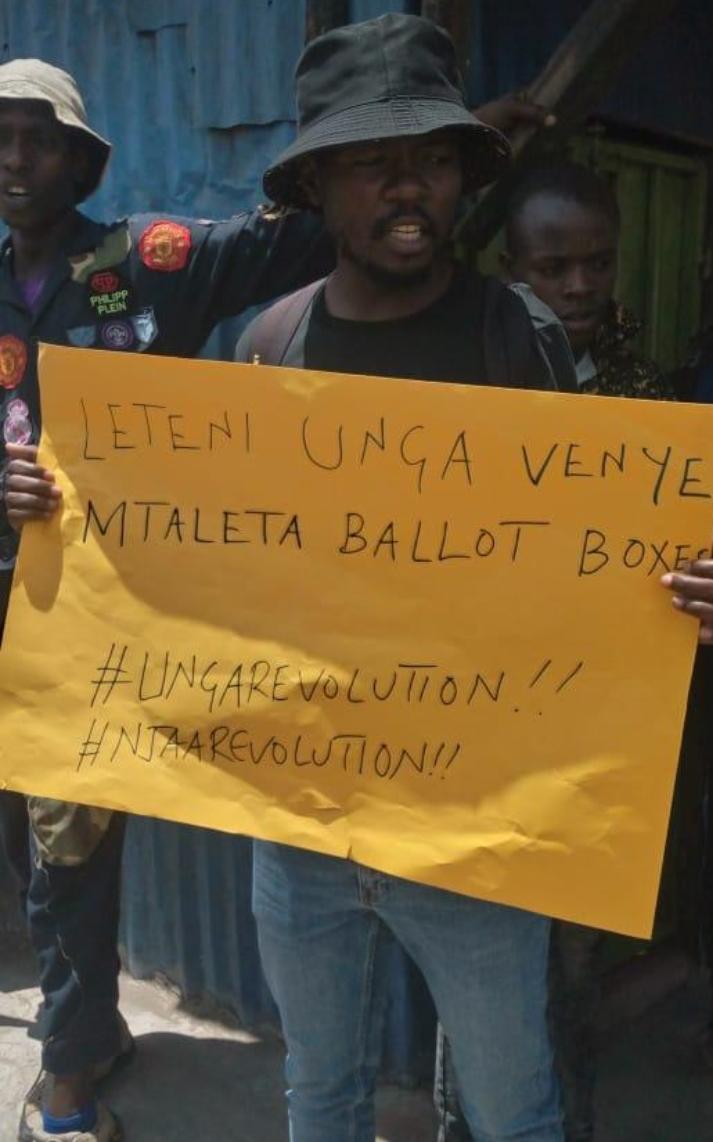 PHILIPP
PLEIN
LETENI UNGA VENYE
MTALETA BALLOT BOXES
#UNGAREVOLUTION!!
#NJAAREVOLUTION!!